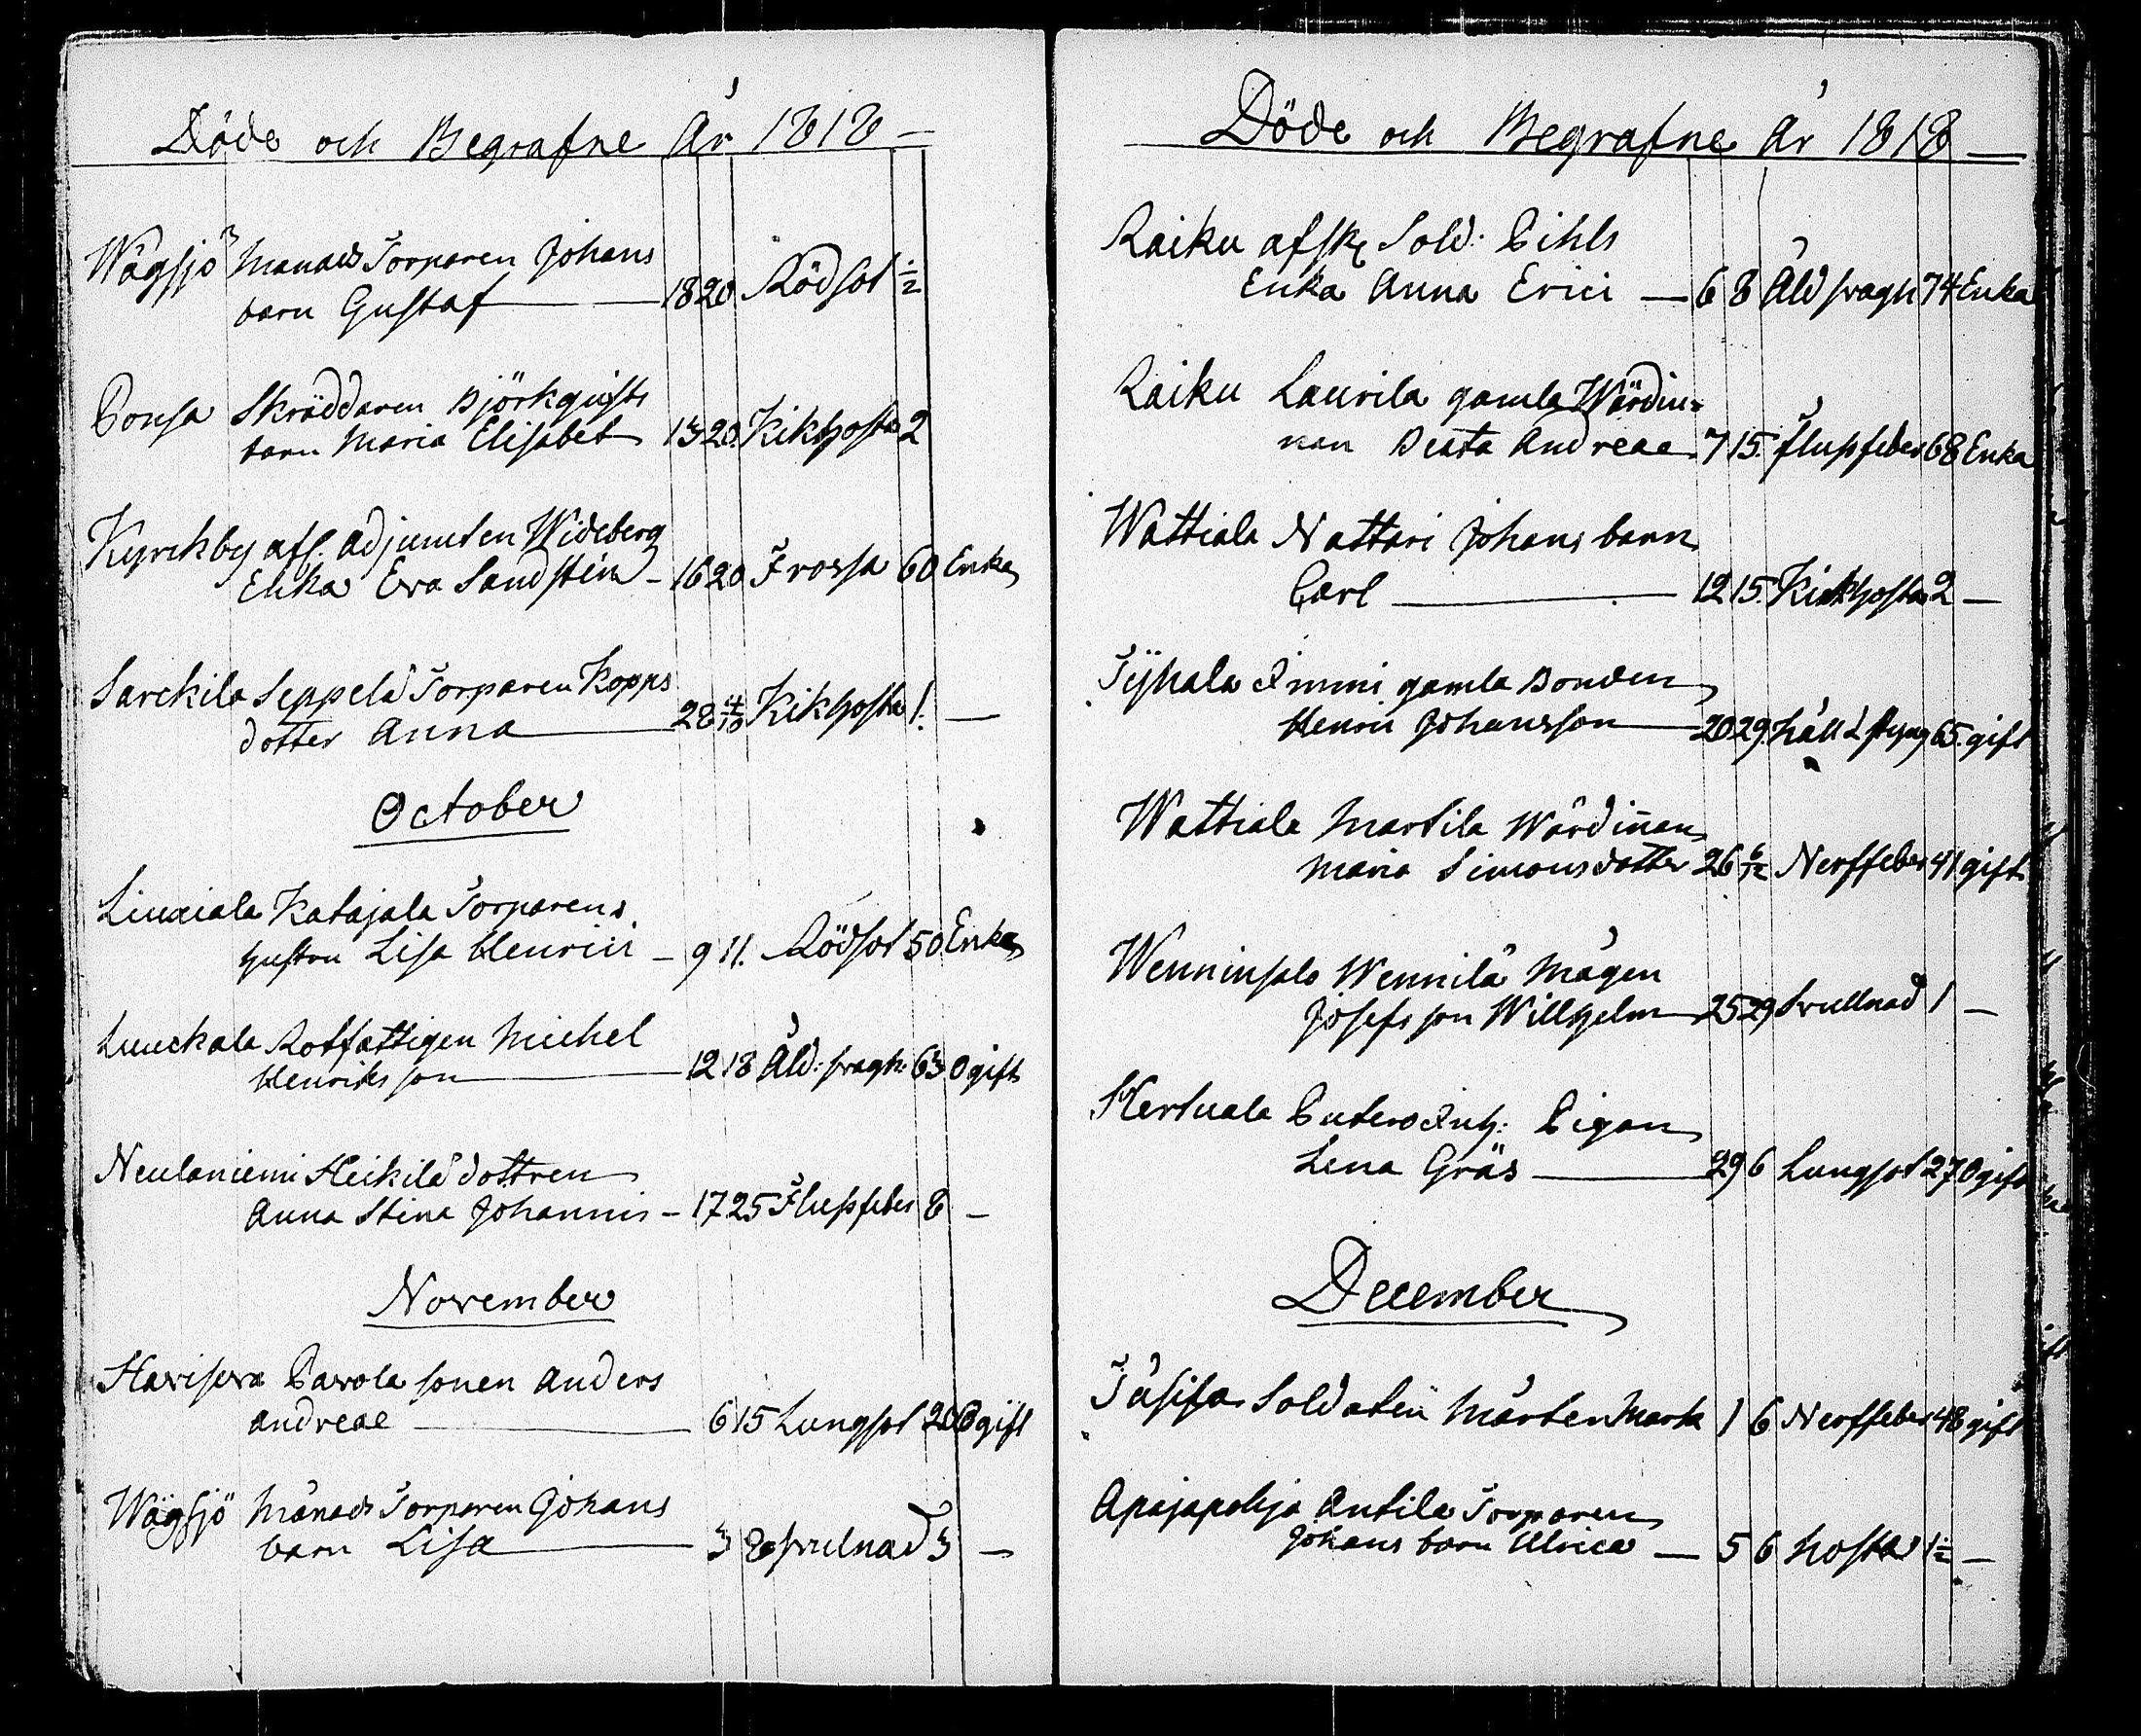 Döde och Begrafne År 1818 —
Wägsjö Månads Torparen Johans
barn Gustaf — 18 20 Rödsot ½
Ponsa Skräddaren Björkquists
barn Maria Elisabet 13 20. Kikhosta 2
Kyrckby afl. Adjuncten Wideberg
Enka Eva Sandstén — 16 20 Frossa 60 Enka
Sarckila Seppelä Torparen Kopps
dotter Anna — 28 4/10 Kikhosta 1. —
October
Linciala Katajala Torparens
hustru Lisa Henrici — 9 11. Rödsot 50 Enka
Lunckala Rotfattigen Michel
Henriksson — 12 18 Åld: svagh. 63 Ogift
Neulaniemi Heikilä dottren
Anna Stina Johannis — 17 25 Flussfeber 8 —
November
Hariseva Parola sonen Anders
Andreae — 6 15 Lungsot 20 Ogift
Wägsjö Månads Torparen Johans
barn Lisa — 3 8 svulnad 3 —
Döde och Begrafne År 1818 —
Raiku afsk. Sold: Pihls
Enka Anna Erici — 6 8 Åld svagh 74 Enka
Raiku Laurila gamla Wärdin-
nan Beata Andreae 7 15. Flussfeber 68 Enka
Wattiala Nattari Johans barn
Carl — 12 15. Kikhosta 2 —
Tyhala Immi gamla Bonden
Henric Johansson — 20 29. Håll & styng 65. gift
Wattiala Martila Wärdin̄an
Maria Simons dotter 26 6/12 Nerffeber 41 gift
Wenninsalo Wennilä Mågen
Josefs son Willhelm — 25 29 Svullnad 1 —
Hertuala Putero Inh: Pigan
Lena Gräs — 29 6 Lungsot 27 Ogift
December
Tåsifa Soldaten Mårten Mark 1 6 Nerffeber 48 gift
Apajapohja Antila Torparen
Johans barn Ulrica — 5 6 hosta 1½ —